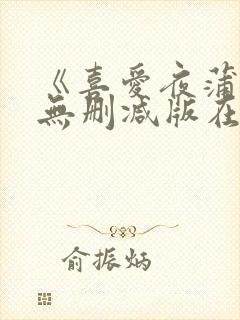 《喜愛夜蒲
無刪减版在
俞振炳